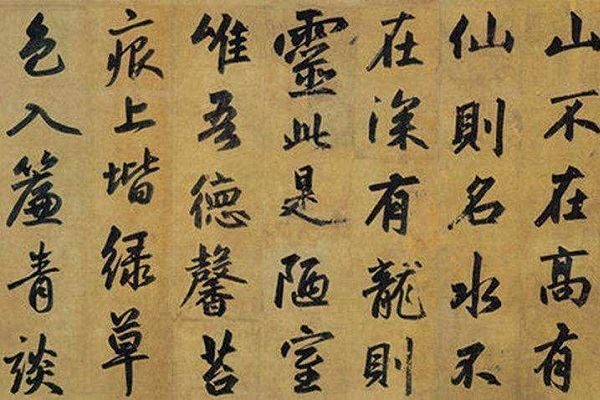 山不在高有
仙則名水不
在深有龍則
靈此是陋室
唯吾德馨苔
痕上堦綠草
色入簾青談